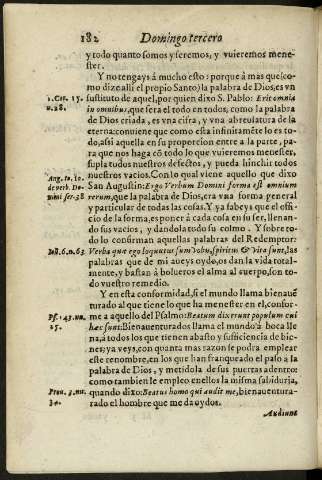 182 Domingo tercero
y todo quanto somos y seremos, y vuieremos mene-
ster.
Y no tengays á mucho esto: porque á mas que (co-
mo dize alli el propio Santo) la palabra de Dios, es vn
1. Cor. 15. sustituto de aquel, por quien dixo S. Pablo: Erit omnia
n. 28. in omnibus, que sera el todo en todos, como la palabra
de Dios criada, es vna cifra, y vna abreuiatura de la
eterna: conuiene que como esta infinitamẽte lo es to-
do, assi aquella en su proporcion entre a la parte, pa-
ra que nos haga cõ todo lo que vuieremos menester,
supla todus nuestros defectos, y pueda hinchir todos
nuestros vacios. Con lo qual viene aquello que dixo
Aug. to. 10. San Augustin: Ergo Verbum Domini forma est omnium
de verb. Do- rerum, que la palabra de Dios, era vna forma general
mini ser. 38 y particular de todas las cosas. Y ya sabeys que el offi-
cio de la forma, es poner á cada cosa en su ser, llenan-
do sus vacios, y dandola todo su colmo. Y sobre to-
do lo confirman aquellas palabras del Redemptor:
Ioã. 6. n. 63. Verba quæ ego loquutus sum vobis, spiritus & vita sunt, las
palabras que de mi aueys oydo, os dan la vida total-
mente, y bastan á bolueros el alma al cuerpo, son to-
do vuestro remedio.
Y en esta conformidad, si el mundo llama bienauẽ
turado al que tiene lo que ha menester en el, confor-
Ps. 143. nu. me a aquello del Psalmo: Beatum dixerunt populum cui
15. hæc sunt: Bienauenturados llama el mundo à boca lle
na, á todos los que tienen abasto y sufficiencia de bie-
nes; ya veys, con quanta mas razon se podra emplear
este renombre, en los que han franqueado el passo a la
palabra de Dios, y metidola de sus puertas adentro:
como tambien le empleo en ellos la misma sabiduria,
Prou. 8. nu. quando dixo: Beatus homo qui audit me, bienauentura-
34. rado el hombre que me da oydos.
Audiunt